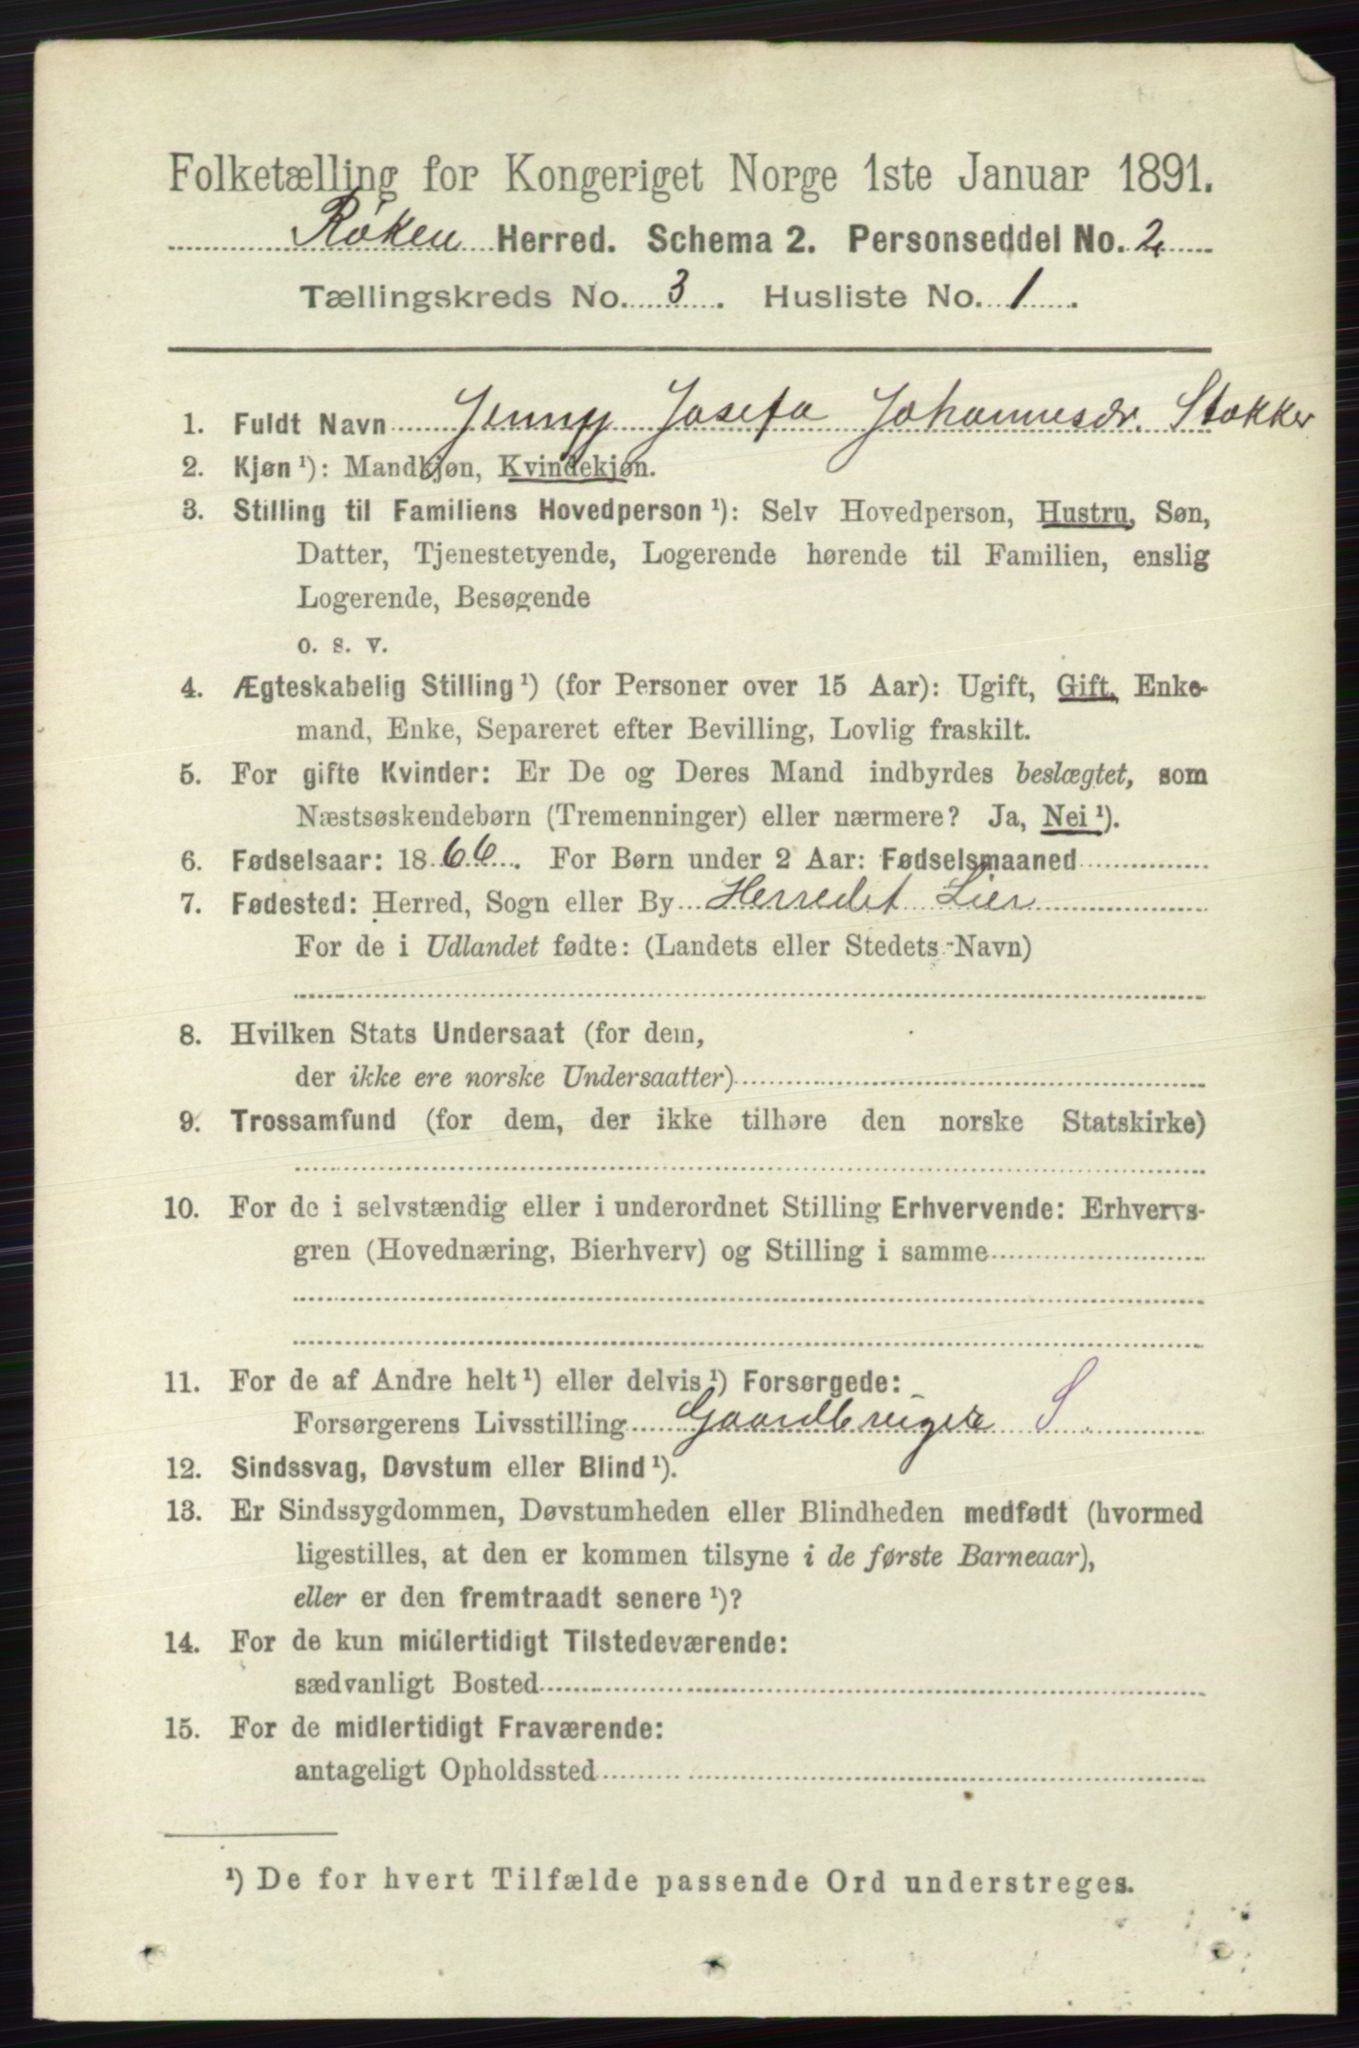 Folketælling for Kongeriget Norge 1ste Januar 1891.
Røken Herred. Schema 2. Personseddel No. 2
Tællingskreds No. 3. Husliste No. 1.
1. Fuldt Navn Jenny Josefa Johannesdr. Stokker
2. Kjøn ¹): Mandkjøn, Kvindekjøn.
3. Stilling til Familiens Hovedperson ¹): Selv Hovedperson, Hustru, Søn,
Datter, Tjenestetyende, Logerende hørende til Familien, enslig
Logerende, Besøgende
o. s. v.
4. Ægteskabelig Stilling ¹) (for Personer over 15 Aar): Ugift, Gift, Enke-
mand, Enke, Separeret efter Bevilling, Lovlig fraskilt.
5. For gifte Kvinder: Er De og Deres Mand indbyrdes beslægtet, som
Næstsøskendebørn (Tremenninger) eller nærmere? Ja, Nei ¹).
6. Fødselsaar: 1866. For Børn under 2 Aar: Fødselsmaaned
7. Fødested: Herred, Sogn eller By Herredet Lier
For de i Udlandet fødte: (Landets eller Stedets Navn)
8. Hvilken Stats Undersaat (for dem,
der ikke ere norske Undersaatter)
9. Trossamfund (for dem, der ikke tilhøre den norske Statskirke)
10. For de i selvstændig eller i underordnet Stilling Erhvervende: Erhvervs-
gren (Hovednæring, Bierhverv) og Stilling i samme
11. For de af Andre helt ¹) eller delvis ¹) Forsørgede:
Forsørgerens Livsstilling Gaardbruger S
12. Sindssvag, Døvstum eller Blind ¹).
13. Er Sindssygdommen, Døvstumheden eller Blindheden medfødt (hvormed
ligestilles, at den er kommen tilsyne i de første Barneaar),
eller er den fremtraadt senere ¹)?
14. For de kun midlertidigt Tilstedeværende:
sædvanligt Bosted
15. For de midlertidigt Fraværende:
antageligt Opholdssted
¹) De for hvert Tilfælde passende Ord understreges.